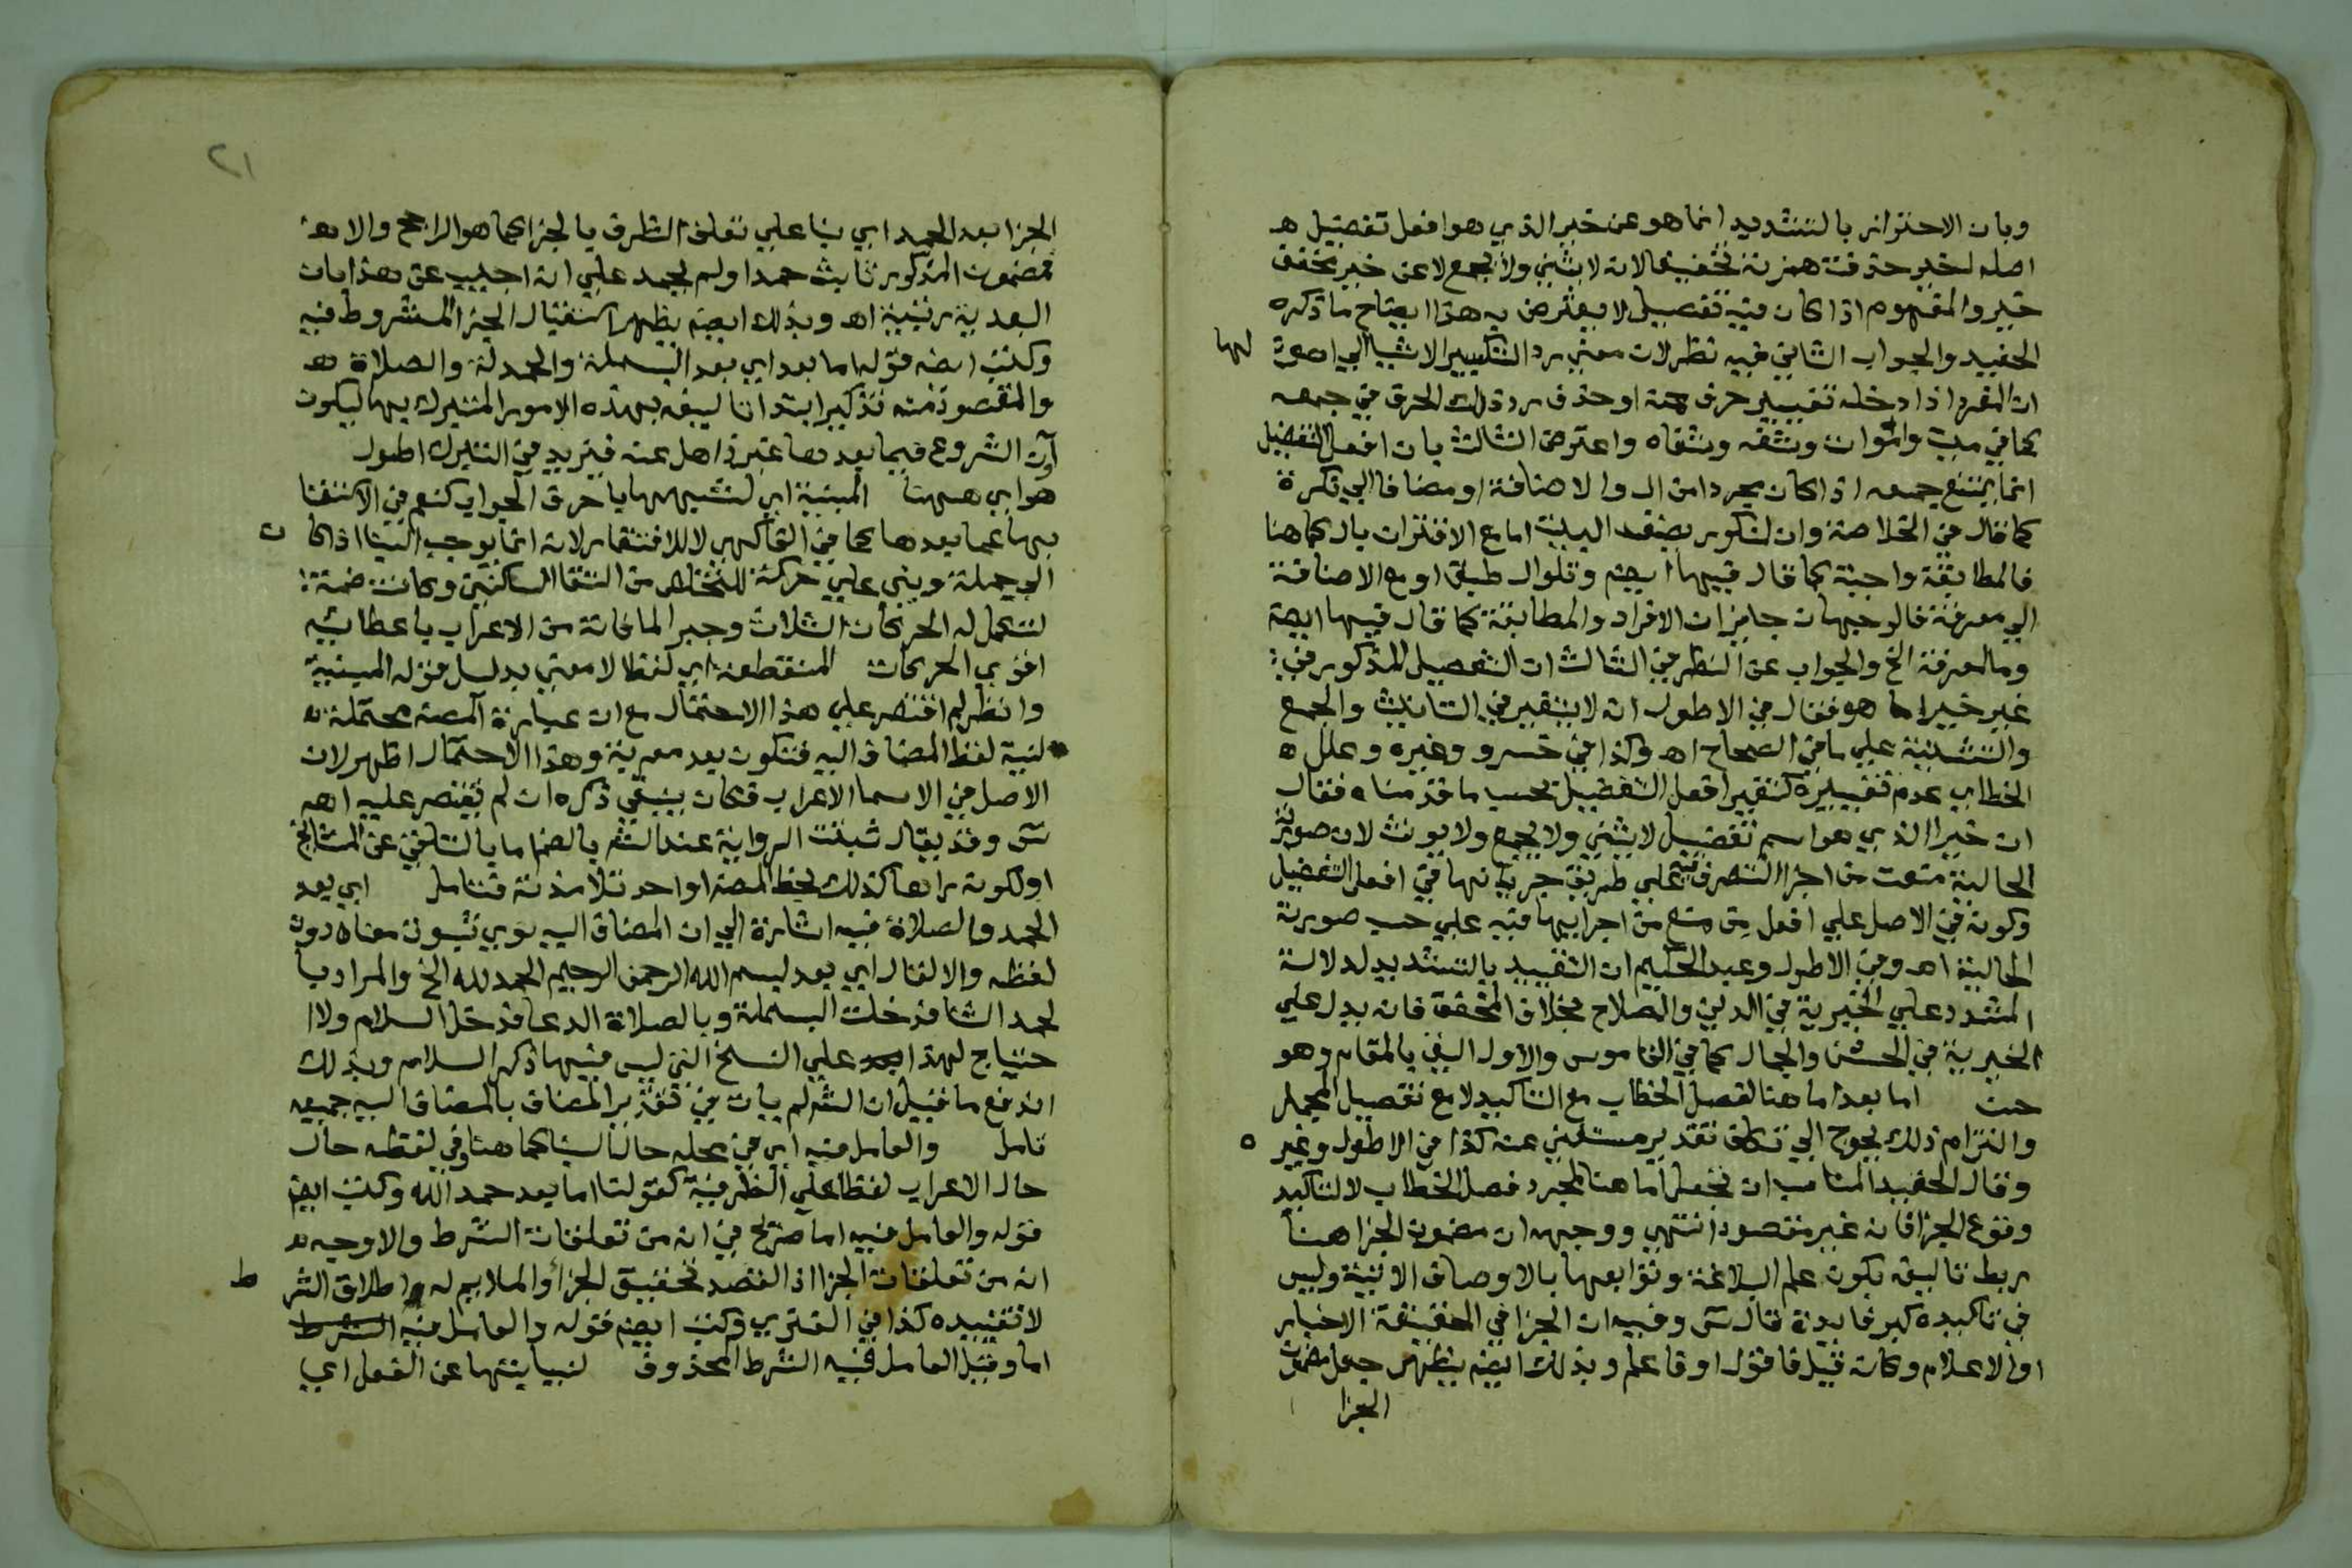 وبان الاحتراز بالتشديد انما هو عن خير الذي هو افعل تفضيل ه
اصله اخير حذفت همزته تخفيفا لانه لا يثنى ولا يجمع لا عن خير مخفف
خير والمفهوم اذا كان فيه تفصيل لا يعترض به هذا ايضاح ما ذكره
الحفيد والجواب الثاني فيه نظر لان معنى رد التكسير الاشيا الى اصولها
ان المفرد اذا دخله تغيير حرف منه او حذف رد ذلك الحرف في جمعه
كما في ميت واموات وشفه وشفاه واعترض الثالث بان افعل التفضيل
انما يمتنع جمعه اذا كان مجردا من ال والاضافة او مضافا الى نكرة
كما قال في الخلاصة وان لمنكور يضف البيت اما مع الاقتران بال كما هنا
فالمطابقة واجبة كما قال فيها ايضا وتلو ال طبق او مع الاضافة
الى معرفة فالوجهان جايزان الافراد والمطابقة كما قال فيها ايضا
وما لمعرفة الخ والجواب عن النظر في الثالث ان التفصيل المذكور في
غير خير اما هو فقال في الاطول انه لا يتغير في التانيث والجمع
والتثنية على ما في الصحاح اه وكذا في خسرو وغيره وعلل ه
الخطابي عدم تغييره كتغيير افعل التفضيل بحسب ما قدمناه فقال
ان خيرا الذي هو اسم تفضيل لا يثنى ولا يجمع ولا يونث لان صورته
الحالية منعت من اجرا التصرف فيه على طريق جريانها في افعل التفضيل
وكونه في الاصل على افعل من منع من اجرايها فيه على حسب صورته
الحالية اه وفي الاطول وعبد الحكيم ان التقييد بالتشديد لدلالة
المشدد على الخيرية في الدين والصلاح بخلاف المخفف فانه يدل على
الخيرية في الحسن والجمال كما في القاموس والاول اليق بالمقام وهو
حسن اما بعد اما هنا لفصل الخطاب مع التاكيد لا مع تفصيل المجمل
والتزام ذلك يحوج الى تكلف تقدير مستغنى عنه كذا في الاطول وغيره
وقال الحفيد المناسب ان تجعل اما هنا لمجرد فصل الخطاب لا لتاكيد
وقوع الجزا فانه غير مقصود انتهى ووجهه ان مضمون الجزا هنا
ربط تاليفه بكون علم البلاغة وتوابعها بالاوصاف الاتية وليس
في تاكيده كبير فايدة قال س وفيه ان الجزا في الحقيقة الاخبار
او الاعلام وكانه قيل فاقول او فاعلم وبذلك ايضا يظهر جعل مضمون
الجزا
٢١
الجزا بعد الحمد اي بنا على تعلق الظرف بالجزا كما هو الراجح والا فه
مضمون المذكور ثابت حمدا ولم يحمد على انه اجيب عن هذا بان
البعدية رتبية اه وبذلك ايضا يظهر استقبال الجزا المشروط فيه
وكتب ايضا قوله اما بعد اي بعد البسملة والحمدلة والصلاة ه
والمقصود منه تذكير ابتدا تاليفه بهذه الامور المتبرك بها ليكون
آن الشروع فيما بعدها غير ذاهل عنه فيزيد في التبرك اطول
هو اي ههنا المبنية اي لشبهها باحرف الجواب كنعم في الاكتفا
بها عما بعدها كما في الفاكهي لا للافتقار لانه انما يوجب البنا اذا كان
الى جملة وبني على حركة للتخلص من التقا الساكنين وكانت ضمة
لتكمل له الحركات الثلاث وجبرا لما فاته من الاعراب باعطائه
اقوى الحركات المنقطعة اي لفظا لا معنى بدليل قوله المبنية
وانظر لم اقتصر على هذا الاحتمال مع ان عبارة المصنه محتملة ه
لنية لفظ المضاف اليه فتكون بعد معربة وهذا الاحتمال اظهر لان
الاصل في الاسما الاعراب فكان ينبغي ذكره ان لم يقتصر عليه اهم
س وقد يقال ثبتت الرواية عند الشه بالضم اما بالتلقي عن المشايخ
او لكونه راها كذلك بخط المصه او احد تلامذته فتامل اي بعد
الحمد والصلاة فيه اشارة الى ان المضاف اليه نوي ثبوت معناه دون
لفظه والا لقال اي بعد بسم الله الرحمن الرحيم الحمد لله الخ والمراد با
لحمد الثنا فدخلت البسملة وبالصلاة الدعا فدخل السلام ولا ا
حتياج لهذا على النسخ التي ليس فيها ذكر السلام وبذلك
اندفع ما قيل ان الشه لم يات في تقدير المضاف بالمضاف اليه جميعه
تامل والعامل فيه اي في محله حال البنا كما هنا وفي لفظه حال
حال الاعراب لفظا على الظرفية كقولنا اما بعد حمد الله وكتب ايضا
قوله والعامل فيه اما صريح في انه من تعلقات الشرط والاوجه ه
انه من تعلقات الجزا اذ القصد تحقيق الجزا والملايم له اطلاق الشرط
لا تقييده كذا في الفنري وكتب ايضا قوله والعامل فيه
اما وقيل العامل فيه الشرط المحذوف لنيابتها عن الفعل اي